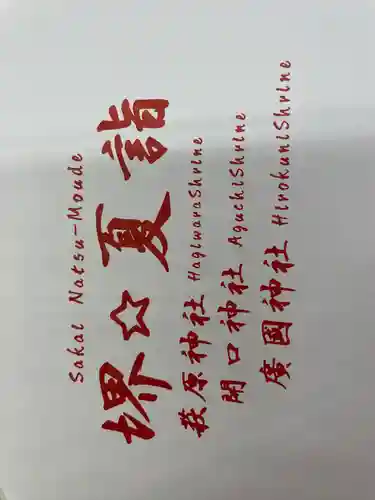 Sakai Natsu-Moude
堺☆夏詣
萩原神社 HagiwaraShrine
開口神社 AguchiShrine
廣國神社 HirokuniShrine